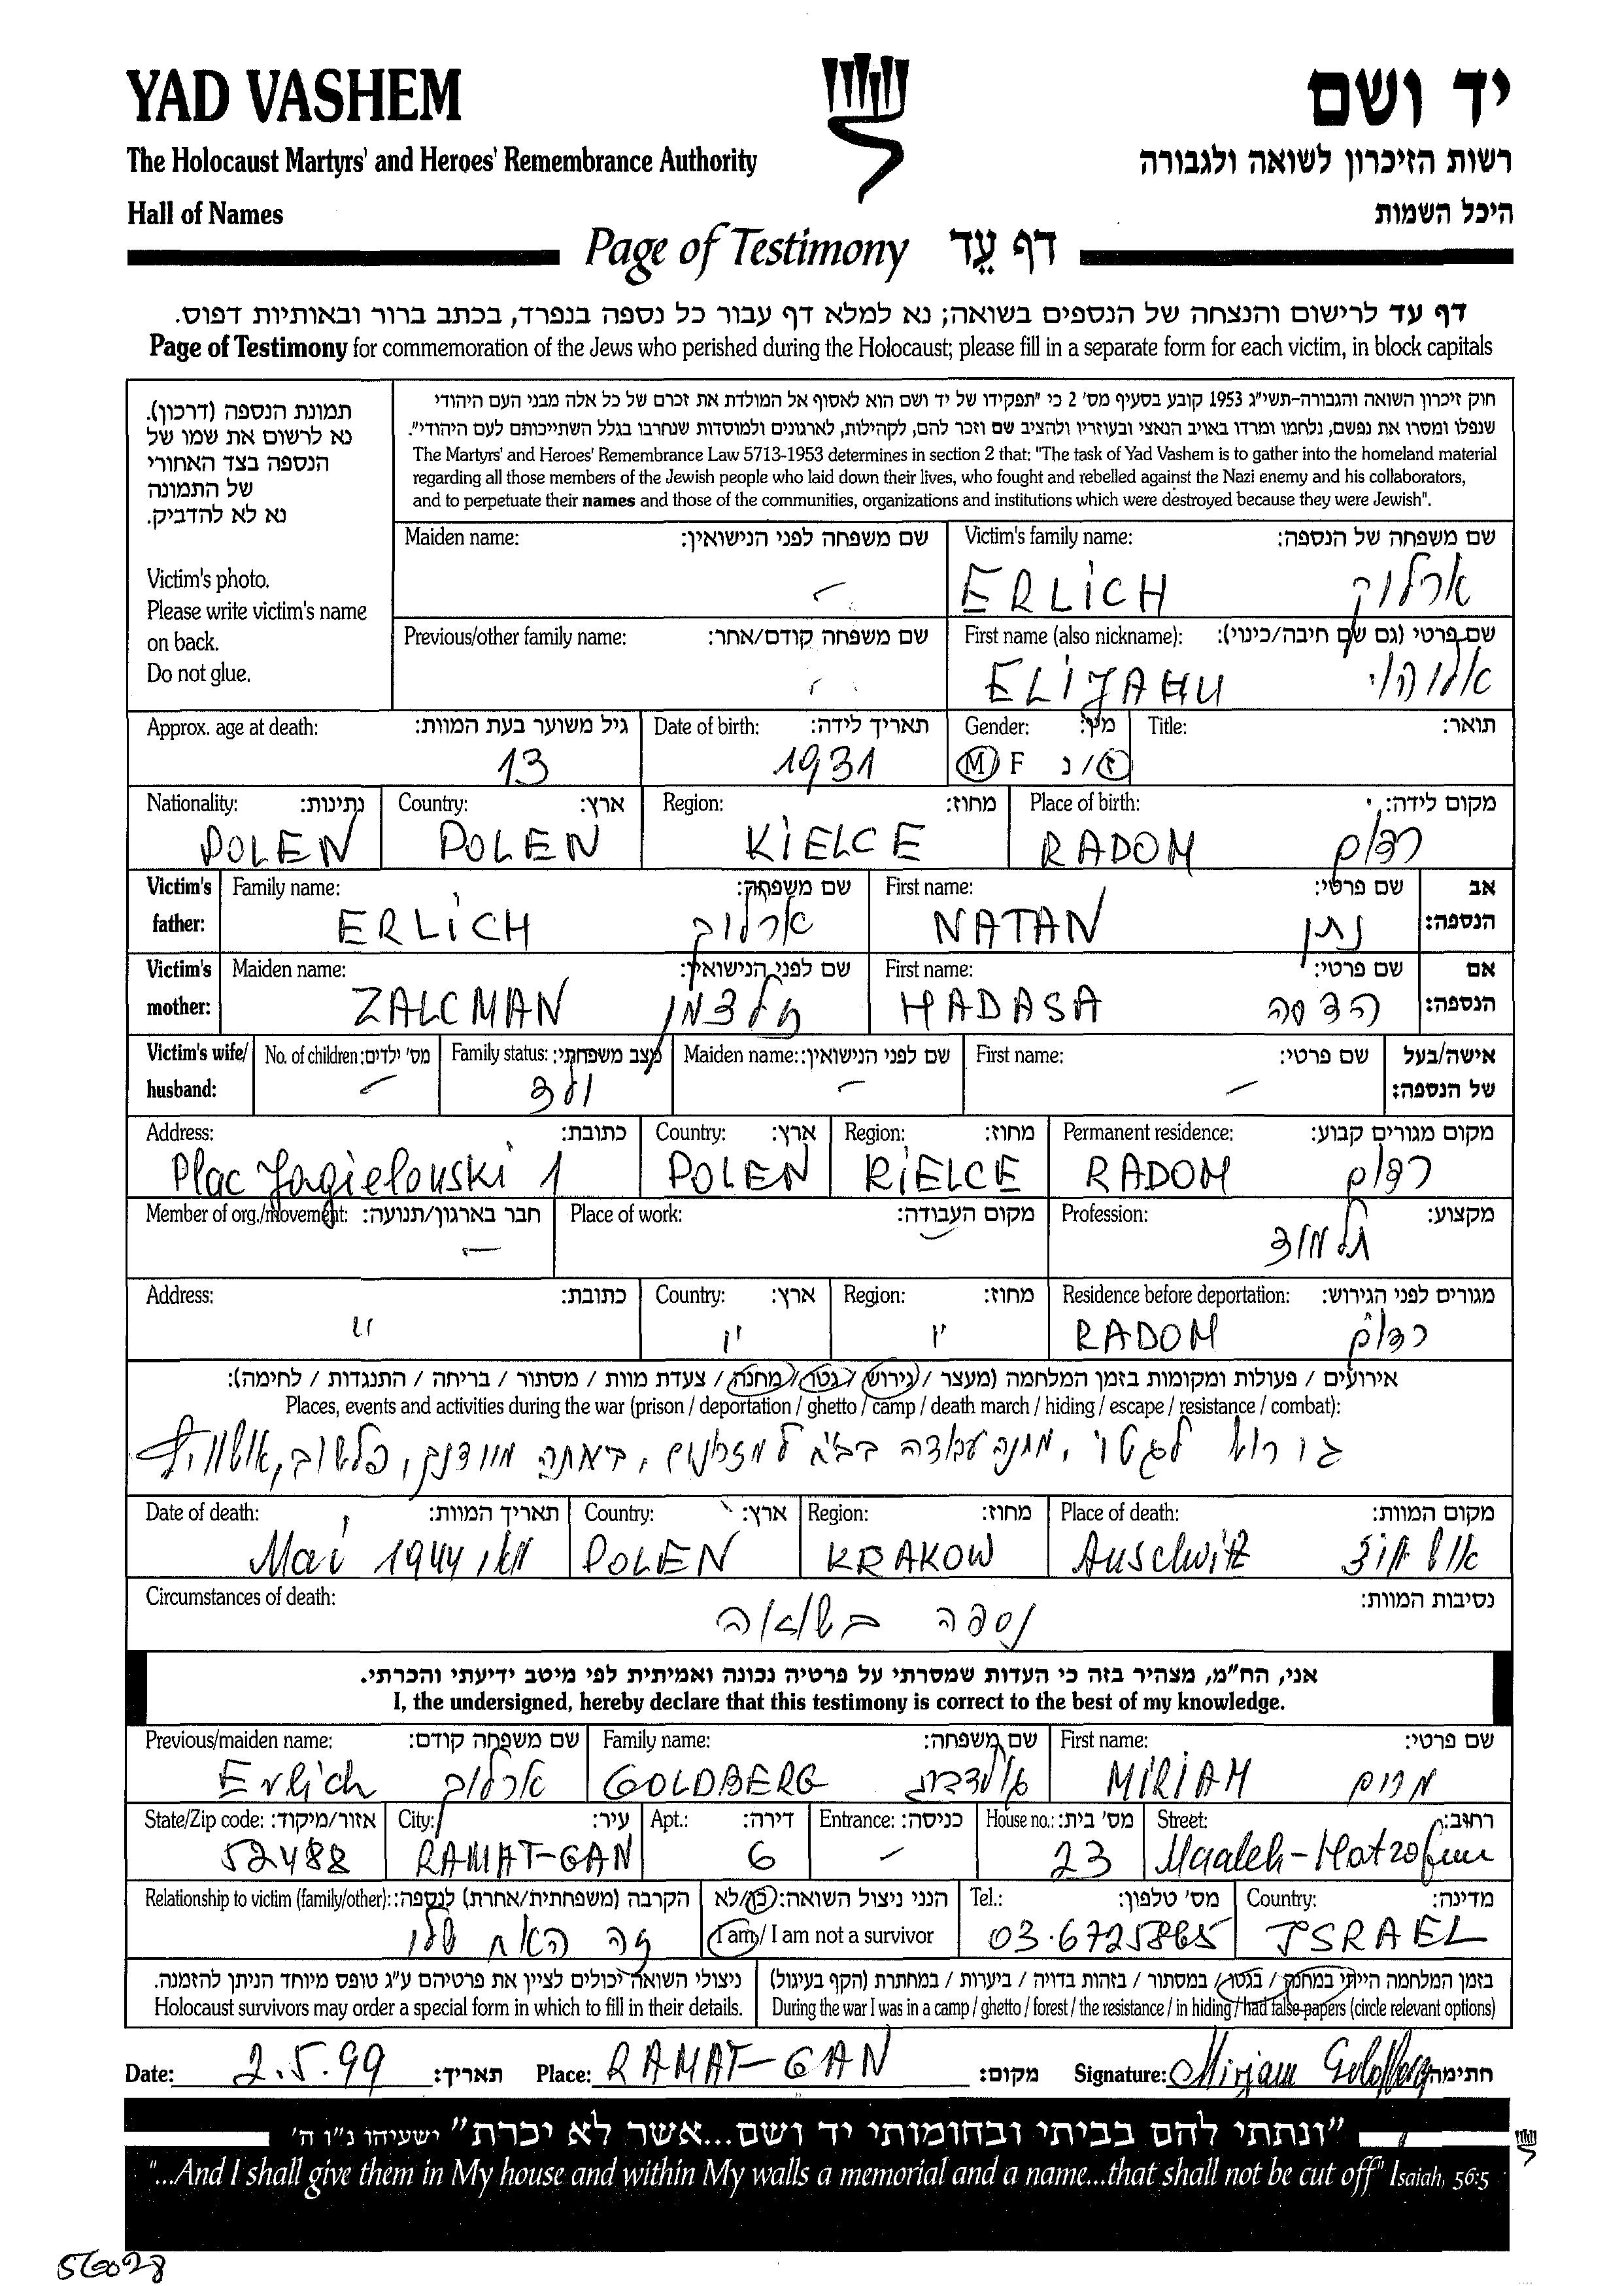 YAD VASHEM
יד ושם
The Holocaust Martyrs' and Heroes' Remembrance Authority
רשות הזיכרון לשואה ולגבורה
Hall of Names
היכל השמות
Page of Testimony דף עֵד
דף עד לרישום והנצחה של הנספים בשואה; נא למלא דף עבור כל נספה בנפרד, בכתב ברור ובאותיות דפוס.
Page of Testimony for commemoration of the Jews who perished during the Holocaust; please fill in a separate form for each victim, in block capitals
תמונת הנספה (דרכון).
נא לרשום את שמו של
הנספה בצד האחורי
של התמונה
נא לא להדביק.
Victim's photo.
Please write victim's name
on back.
Do not glue.
חוק זיכרון השואה והגבורה-תשי"ג 1953 קובע בסעיף מס' 2 כי "תפקידו של יד ושם הוא לאסוף אל המולדת את זכרם של כל אלה מבני העם היהודי
שנפלו ומסרו את נפשם, נלחמו ומרדו באויב הנאצי ובעוזריו ולהציב שם וזכר להם, לקהילות, לארגונים ולמוסדות שנחרבו בגלל השתייכותם לעם היהודי".
The Martyrs' and Heroes' Remembrance Law 5713-1953 determines in section 2 that: "The task of Yad Vashem is to gather into the homeland material
regarding all those members of the Jewish people who laid down their lives, who fought and rebelled against the Nazi enemy and his collaborators,
and to perpetuate their names and those of the communities, organizations and institutions which were destroyed because they were Jewish".
Maiden name: שם משפחה לפני הנישואין: Victim's family name: שם משפחה של הנספה:
- ERLICH ארליך
Previous/other family name: שם משפחה קודם/אחר: First name (also nickname): שם פרטי (גם שם חיבה/כינוי):
- ELIJAHU אליהו
Approx. age at death: גיל משוער בעת המוות: Date of birth: תאריך לידה: Gender: מין: Title: תואר:
13 1931 M F ז/נ
Nationality: נתינות: Country: ארץ: Region: מחוז: Place of birth: מקום לידה:
POLEN POLEN KIELCE RADOM רדום
Victim's father: Family name: שם משפחה: First name: שם פרטי: אב הנספה:
ERLICH ארליך NATAN נתן
Victim's mother: Maiden name: שם לפני הנישואין: First name: שם פרטי: אם הנספה:
ZALCMAN זלצמן HADASA הדסה
Victim's wife/ husband: No. of children: מס' ילדים: Family status: מצב משפחתי: Maiden name: שם לפני הנישואין: First name: שם פרטי: אישה/בעל של הנספה:
- ילד - -
Address: כתובת: Country: ארץ: Region: מחוז: Permanent residence: מקום מגורים קבוע:
Plac Jagielouski 1 POLEN KIELCE RADOM רדום
Member of org./movement: חבר בארגון/תנועה: Place of work: מקום העבודה: Profession: מקצוע:
- - תלמיד
Address: כתובת: Country: ארץ: Region: מחוז: Residence before deportation: מגורים לפני הגירוש:
" " " RADOM רדום
אירועים / פעולות ומקומות בזמן המלחמה (מעצר / גירוש / גטו / מחנה / צעדת מוות / מסתור / בריחה / התנגדות / לחימה):
Places, events and activities during the war (prison / deportation / ghetto / camp / death march / hiding / escape / resistance / combat):
גירוש לגטו, מחנה עבודה בבי"ח מיידנק, פלשוב, אושוויץ
Date of death: תאריך המוות: Country: ארץ: Region: מחוז: Place of death: מקום המוות:
Mai 1944 מאי POLEN KRAKOW Auschwitz אושוויץ
Circumstances of death: נסיבות המוות:
נספה בשואה
אני, הח"מ, מצהיר בזה כי העדות שמסרתי על פרטיה נכונה ואמיתית לפי מיטב ידיעתי והכרתי.
I, the undersigned, hereby declare that this testimony is correct to the best of my knowledge.
Previous/maiden name: שם משפחה קודם: Family name: שם משפחה: First name: שם פרטי:
Erlich ארליך GOLDBERG גולדברג MIRIAM מרים
State/Zip code: אזור/מיקוד: City: עיר: Apt.: דירה: Entrance: כניסה: House no.: מס' בית: Street: רחוב:
52488 RAMAT-GAN 6 - 23 Maaleh-Hatzofim
Relationship to victim (family/other): הקרבה (משפחתית/אחרת) לנספה: הנני ניצול השואה: כן/לא Tel.: מס' טלפון: Country: מדינה:
זה האח שלי I am / I am not a survivor 03.6725865 ISRAEL
ניצולי השואה יכולים לציין את פרטיהם ע"ג טופס מיוחד הניתן להזמנה. בזמן המלחמה הייתי במחנה / בגטו / במסתור / בזהות בדויה / ביערות / במחתרת (הקף בעיגול)
Holocaust survivors may order a special form in which to fill in their details. During the war I was in a camp / ghetto / forest / the resistance / in hiding / had false papers (circle relevant options)
Date: 2.5.99 תאריך: Place: RAMAT-GAN מקום: Signature: Mirjam Goldberg חתימה
"ונתתי להם בביתי ובחומותי יד ושם...אשר לא יכרת" ישעיהו נ"ו ה'
"...And I shall give them in My house and within My walls a memorial and a name...that shall not be cut off" Isaiah, 56:5